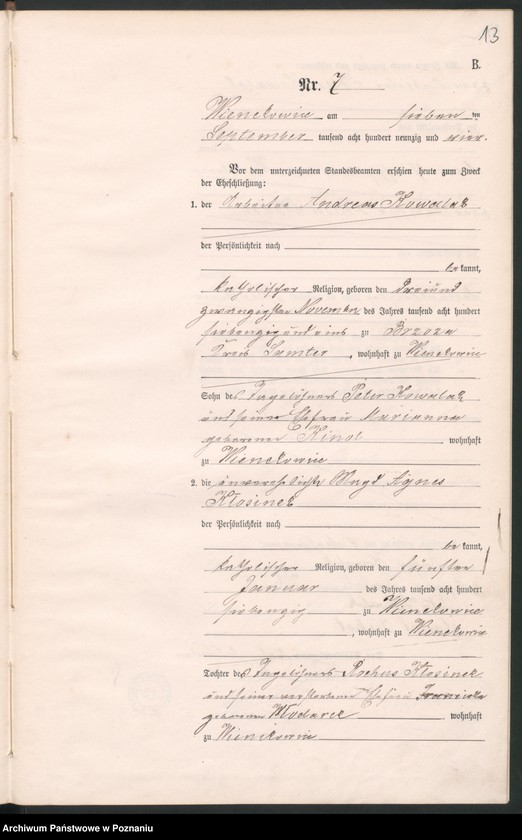 13
B.
Nr. 7
Wienckowice am sieben ten
September tausend acht hundert neunzig und vier.
Vor dem unterzeichneten Standesbeamten erschien heute zum Zweck
der Eheschließung:
1. der Arbeiter Andreas Kowalak
der Persönlichkeit nach
be kannt,
katholischer Religion, geboren den dreiund
zwanzigsten November des Jahres tausend acht hundert
siebenzig und eins zu Brzoza
Kreis Samter, wohnhaft zu Wienckowice
Sohn des Tagelöhners Peter Kowalak
und seiner Ehefrau Marianna
geborener wohnhaft
zu Wienckowice
2. die unverehelichte Magd Agnes
Klosinek
der Persönlichkeit nach
be kannt,
katholischer Religion, geboren den fünften
Januar des Jahres tausend acht hundert
siebenzig zu Wienckowice
, wohnhaft zu Wienckowice
Tochter des Tagelöhners Rochus Klosinek
und seiner verstorbenen Ehefrau
geborenen Wlodarek wohnhaft
zu Wienckowice
Archiwum Państwowe w Poznaniu